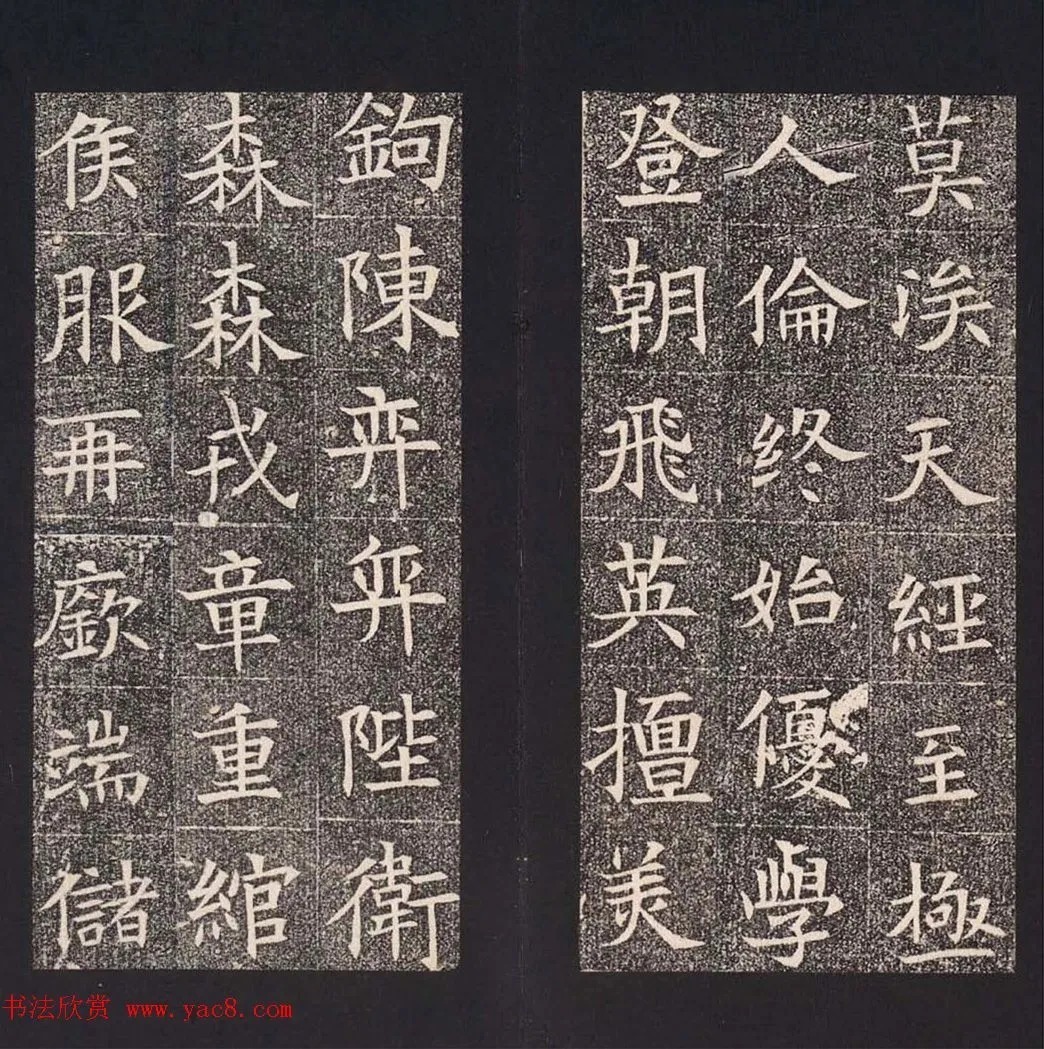 莫涘天經至極
人倫終始優學
登朝飛英擅美
鉤陳弈弈陛衛
森森戎章重綰
侯服再廞端儲
书法欣赏 www.yac8.com